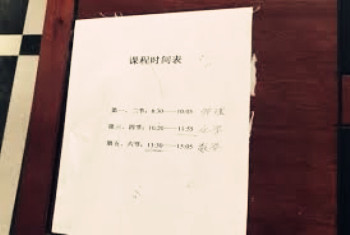 课程时间表
第一、二节：8:30——10:05
第三、四节：10:20——11:55
第五、六节：13:30——15:05 数学